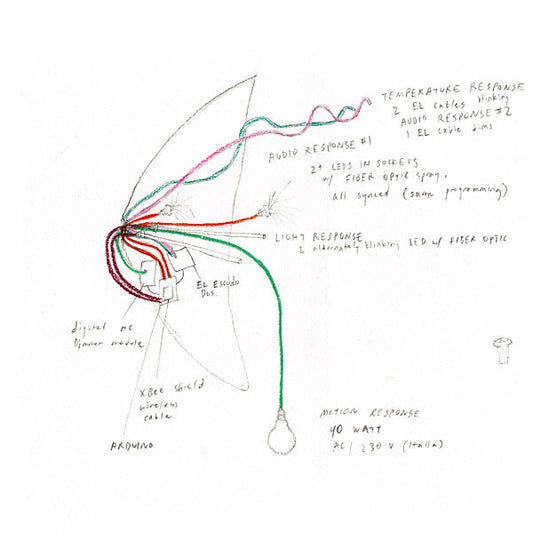 TEMPERATURE RESPONSE
2 EL cables blinking
AUDIO RESPONSE #2
1 EL cable dims
AUDIO RESPONSE #1
2+ LEDS IN SOCKETS
w/ FIBER OPTIC spray,
all synced (same programming)
LIGHT RESPONSE
2 alternately blinking LED w/ FIBER OPTIC
EL Escudo
Dos.
digital AC
Dimmer module
XBee shield
wireless
cable
ARDUINO
MOTION RESPONSE
40 WATT
AC/ 230 V (Italia)